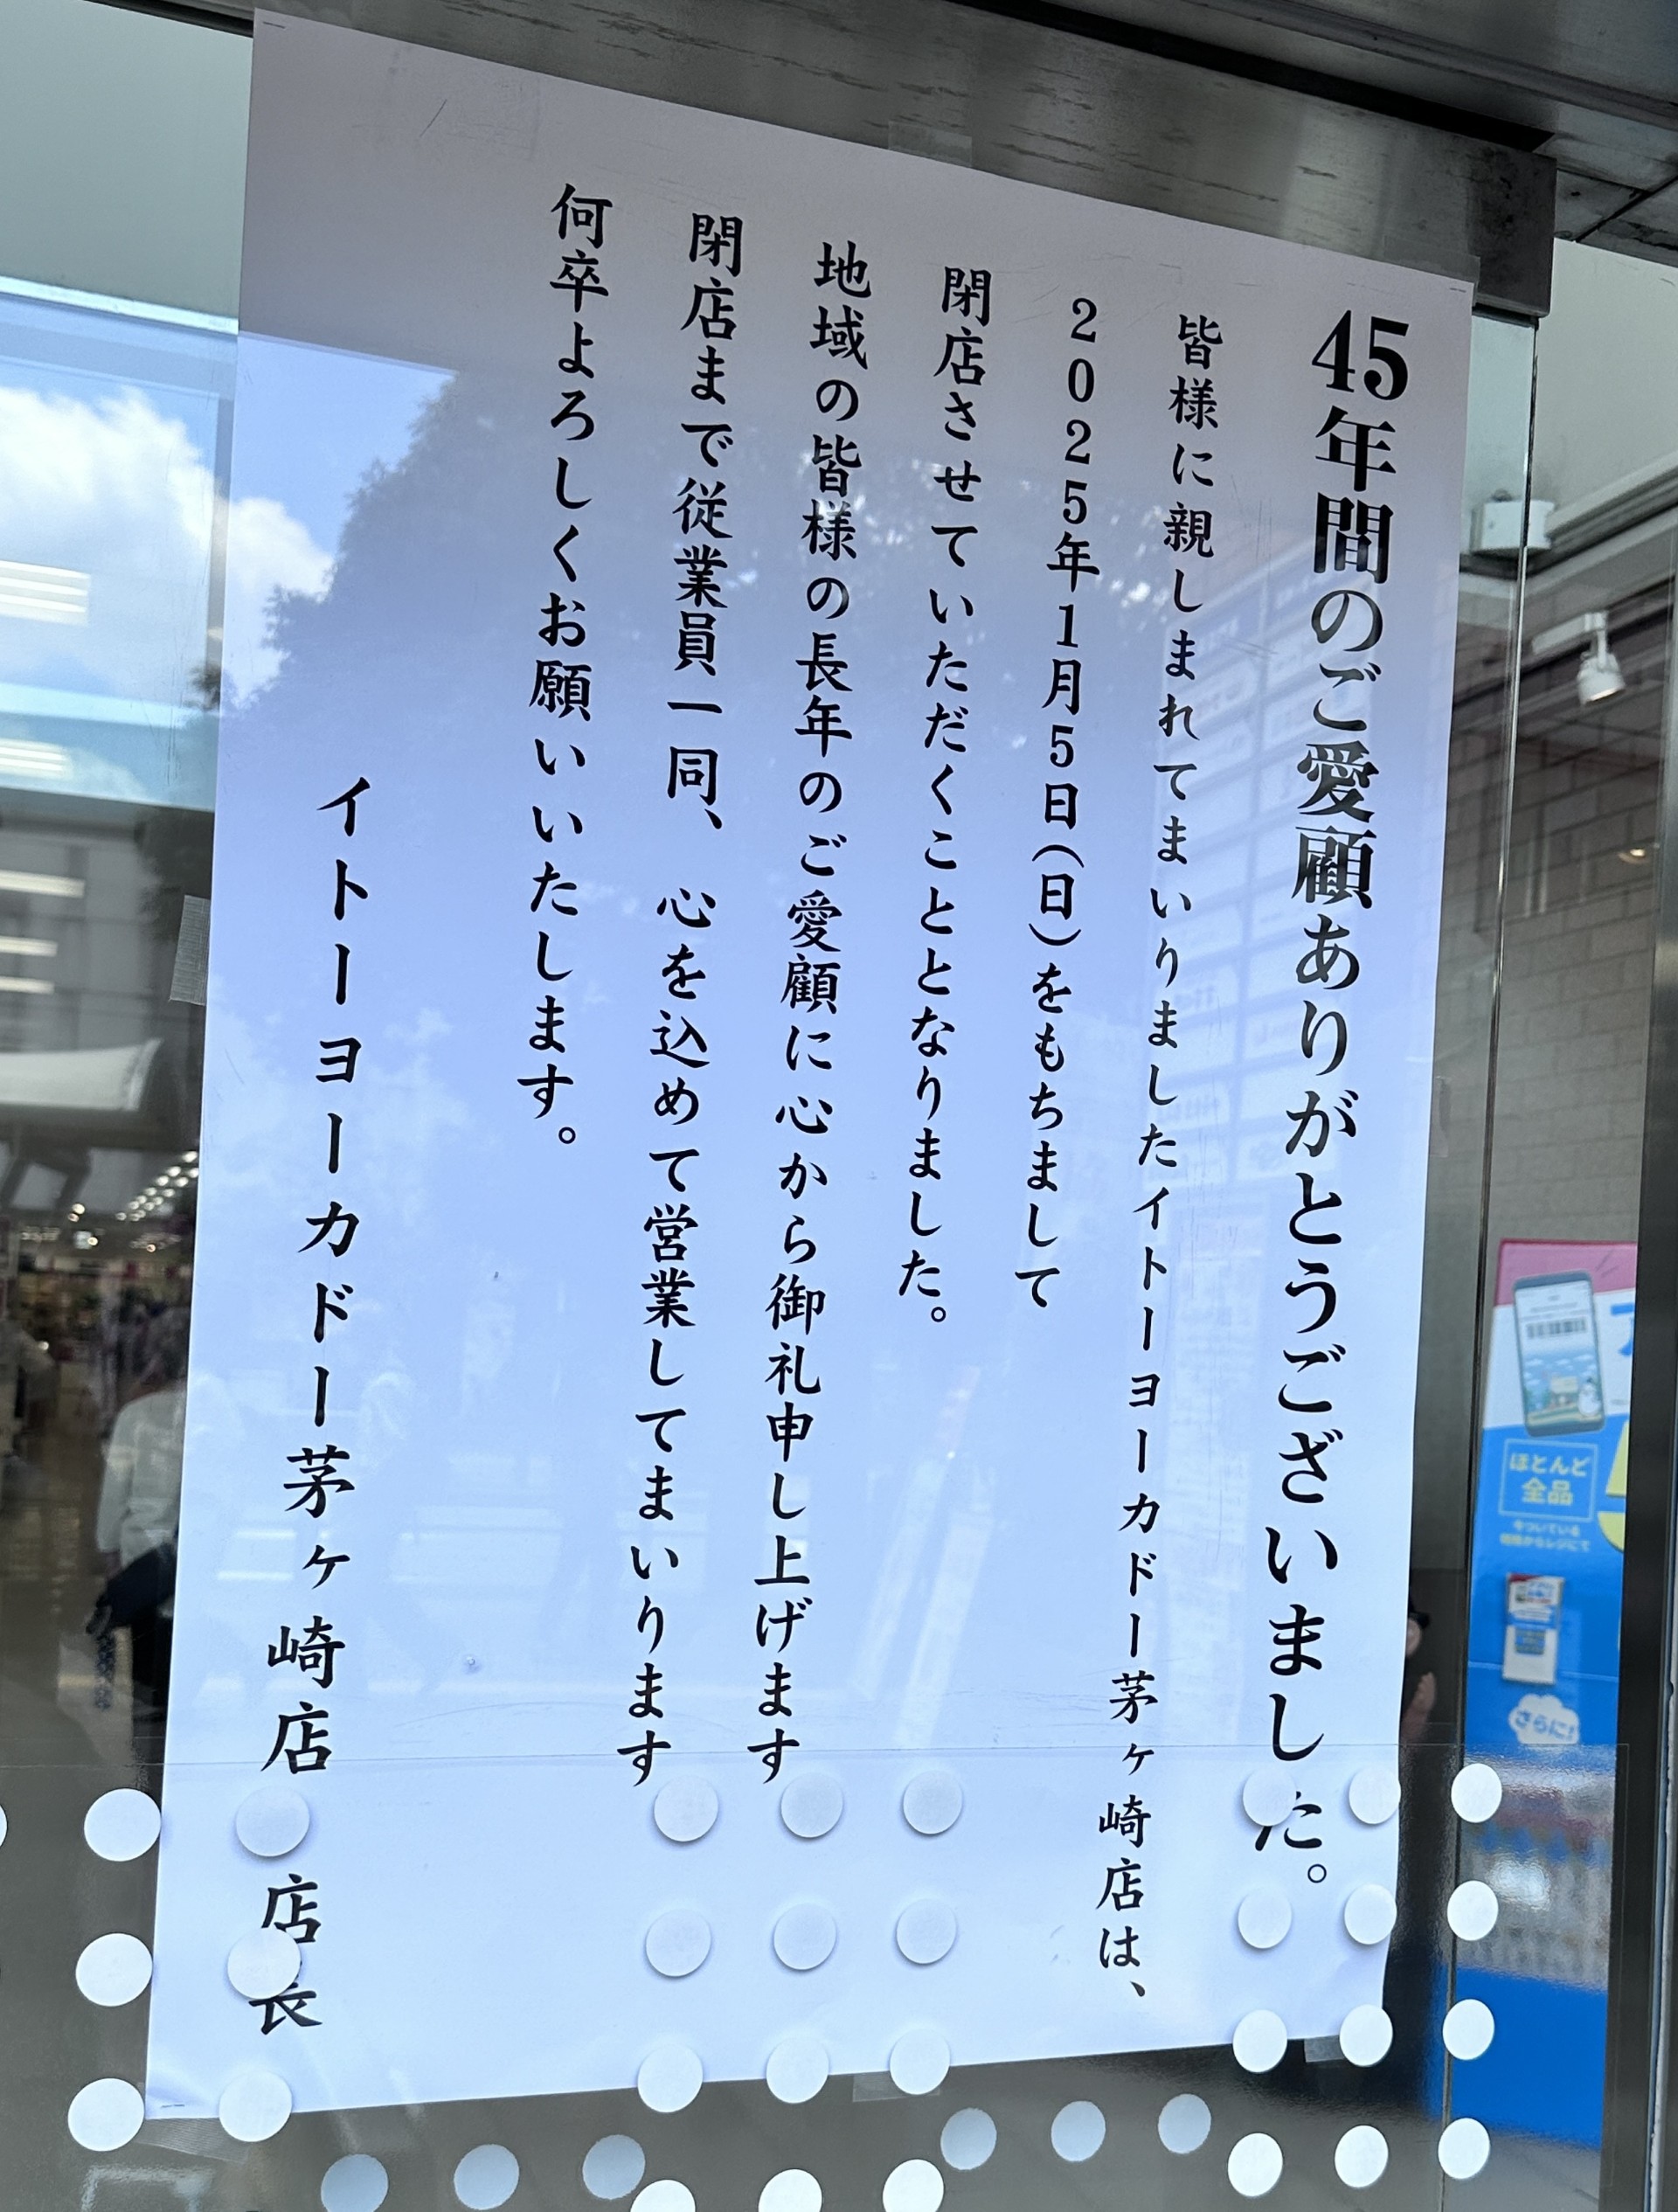 45年間のご愛顧ありがとうございました。
皆様に親しまれてまいりましたイトーヨーカドー茅ヶ崎店は、
2025年1月5日(日)をもちまして
閉店させていただくこととなりました。
地域の皆様の長年のご愛顧に心から御礼申し上げます
閉店まで従業員一同、心を込めて営業してまいります
何卒よろしくお願いいたします。
イトーヨーカドー茅ヶ崎店 店長
ほとんど
全品
さらに!